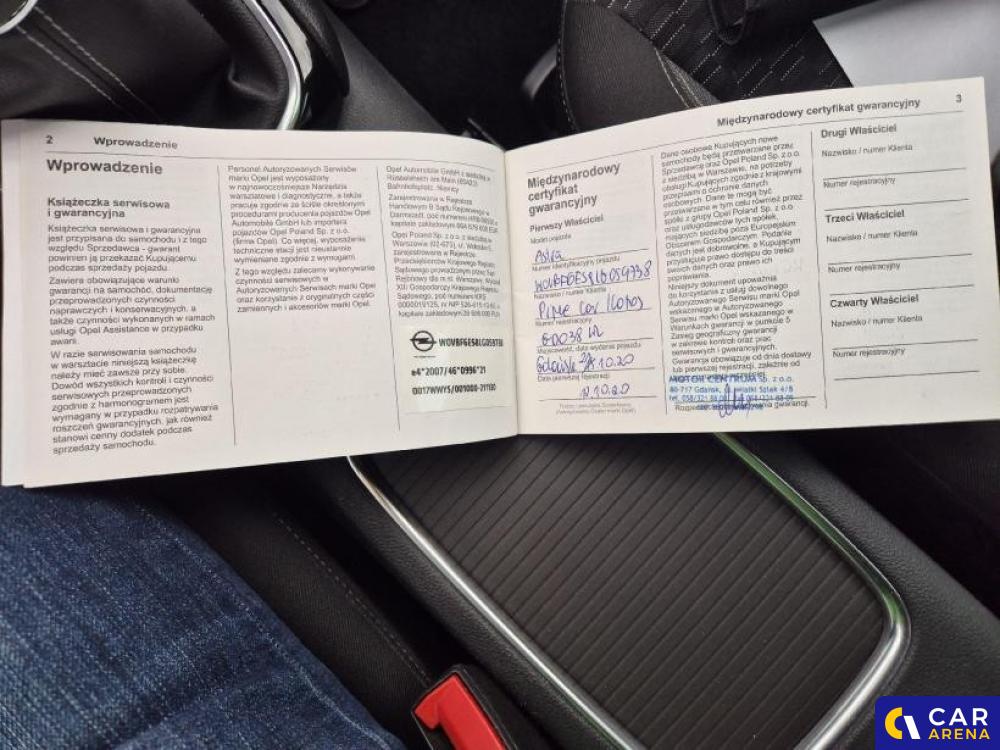 2 Wprowadzenie
Wprowadzenie
Książeczka serwisowa
i gwarancyjna
Książeczka serwisowa i gwarancyjna
jest przypisana do samochodu i z tego
względu Sprzedawca - gwarant
powinien ją przekazać Kupującemu
podczas sprzedaży pojazdu.
Zawiera obowiązujące warunki
gwarancji na samochód, dokumentację
przeprowadzonych czynności
naprawczych i konserwacyjnych, a
także czynności wykonanych w ramach
usługi Opel Assistance w przypadku
awarii.
W razie serwisowania samochodu
w warsztacie niniejszą książeczkę
należy mieć zawsze przy sobie.
Dowód wszystkich kontroli i czynności
serwisowych przeprowadzonych
zgodnie z harmonogramem jest
wymagany w przypadku rozpatrywania
roszczeń gwarancyjnych, jak również
stanowi cenny dodatek podczas
sprzedaży samochodu.
Personel Autoryzowanych Serwisów
marki Opel jest wyposażony
w najnowocześniejsze Narzędzia
warsztatowe i diagnostyczne, a także
pracuje zgodnie ze ściśle określonymi
procedurami producenta pojazdów Opel
Automobile GmbH lub importera
pojazdów Opel Poland Sp. z o.o.
(firma Opel). Co więcej, wyposażenie
techniczne stacji jest nieustannie
wymieniane zgodnie z wymogami.
Z tego względu zalecamy wykonywanie
czynności serwisowych w
Autoryzowanych Serwisach marki Opel
oraz korzystanie z oryginalnych części
zamiennych i akcesoriów marki Opel.
Opel Automobile GmbH z siedzibą w
Rüsselsheim am Main (65423)
Bahnhofsplatz, Niemcy
Zarejestrowana w Rejestrze
Handlowym B Sądu Rejonowego w
Opel Poland Sp. z o.o. z siedzibą w
zarejestrowana w Rejestrze
Przedsiębiorców Krajowego Rejestru
Sądowego prowadzonym przez Sąd
XIII Gospodarczy Krajowego Rejestru
Sądowego, pod numerem KRS
e4*2007/46*0996*21
3
Międzynarodowy certyfikat gwarancyjny
Międzynarodowy
certyfikat
gwarancyjny
Pierwszy Właściciel
Model pojazdu
Astra
Numer identyfikacyjny pojazdu
Nazwisko / numer Klienta
Numer rejestracyjny
Miejscowość, data wydania pojazdu
Data pierwszej rejestracji
Dane osobowe Kupujących nowe
samochody będą przetwarzane przez
Sprzedawcę oraz Opel Poland Sp. z o.o.
z siedzibą w Warszawie, na potrzeby
obsługi Kupujących zgodnie z krajowymi
przepisami o ochronie danych
osobowych. Dane te mogą być
przetwarzane w tym celu również przez
spółki z grupy Opel Poland Sp. z o.o.
oraz usługodawców tych spółek,
mających siedzibę poza Europejskim
Obszarem Gospodarczym. Podanie
danych jest dobrowolne, a Kupującym
przysługuje prawo dostępu do treści
swoich danych oraz prawo ich
poprawiania.
Niniejszy dokument upoważnia
do korzystania z usług dowolnego
Autoryzowanego Serwisu marki Opel
wskazanego w Autoryzowanego
Serwisu marki Opel wskazanego w
Warunkach gwarancji w punkcie 5
Zasięg geograficzny gwarancji
w zakresie kontroli oraz prac
serwisowych i gwarancyjnych.
Gwarancja obowiązuje od dnia dostawy
lub pierwszej rejestracji, zależnie od
MOTOR CENTRUM Sp. z o.o.
Drugi Właściciel
Nazwisko / numer Klienta
Numer rejestracyjny
Trzeci Właściciel
Nazwisko / numer Klienta
Numer rejestracyjny
Czwarty Właściciel
Nazwisko / numer Klienta
Numer rejestracyjny
CAR
ARENA